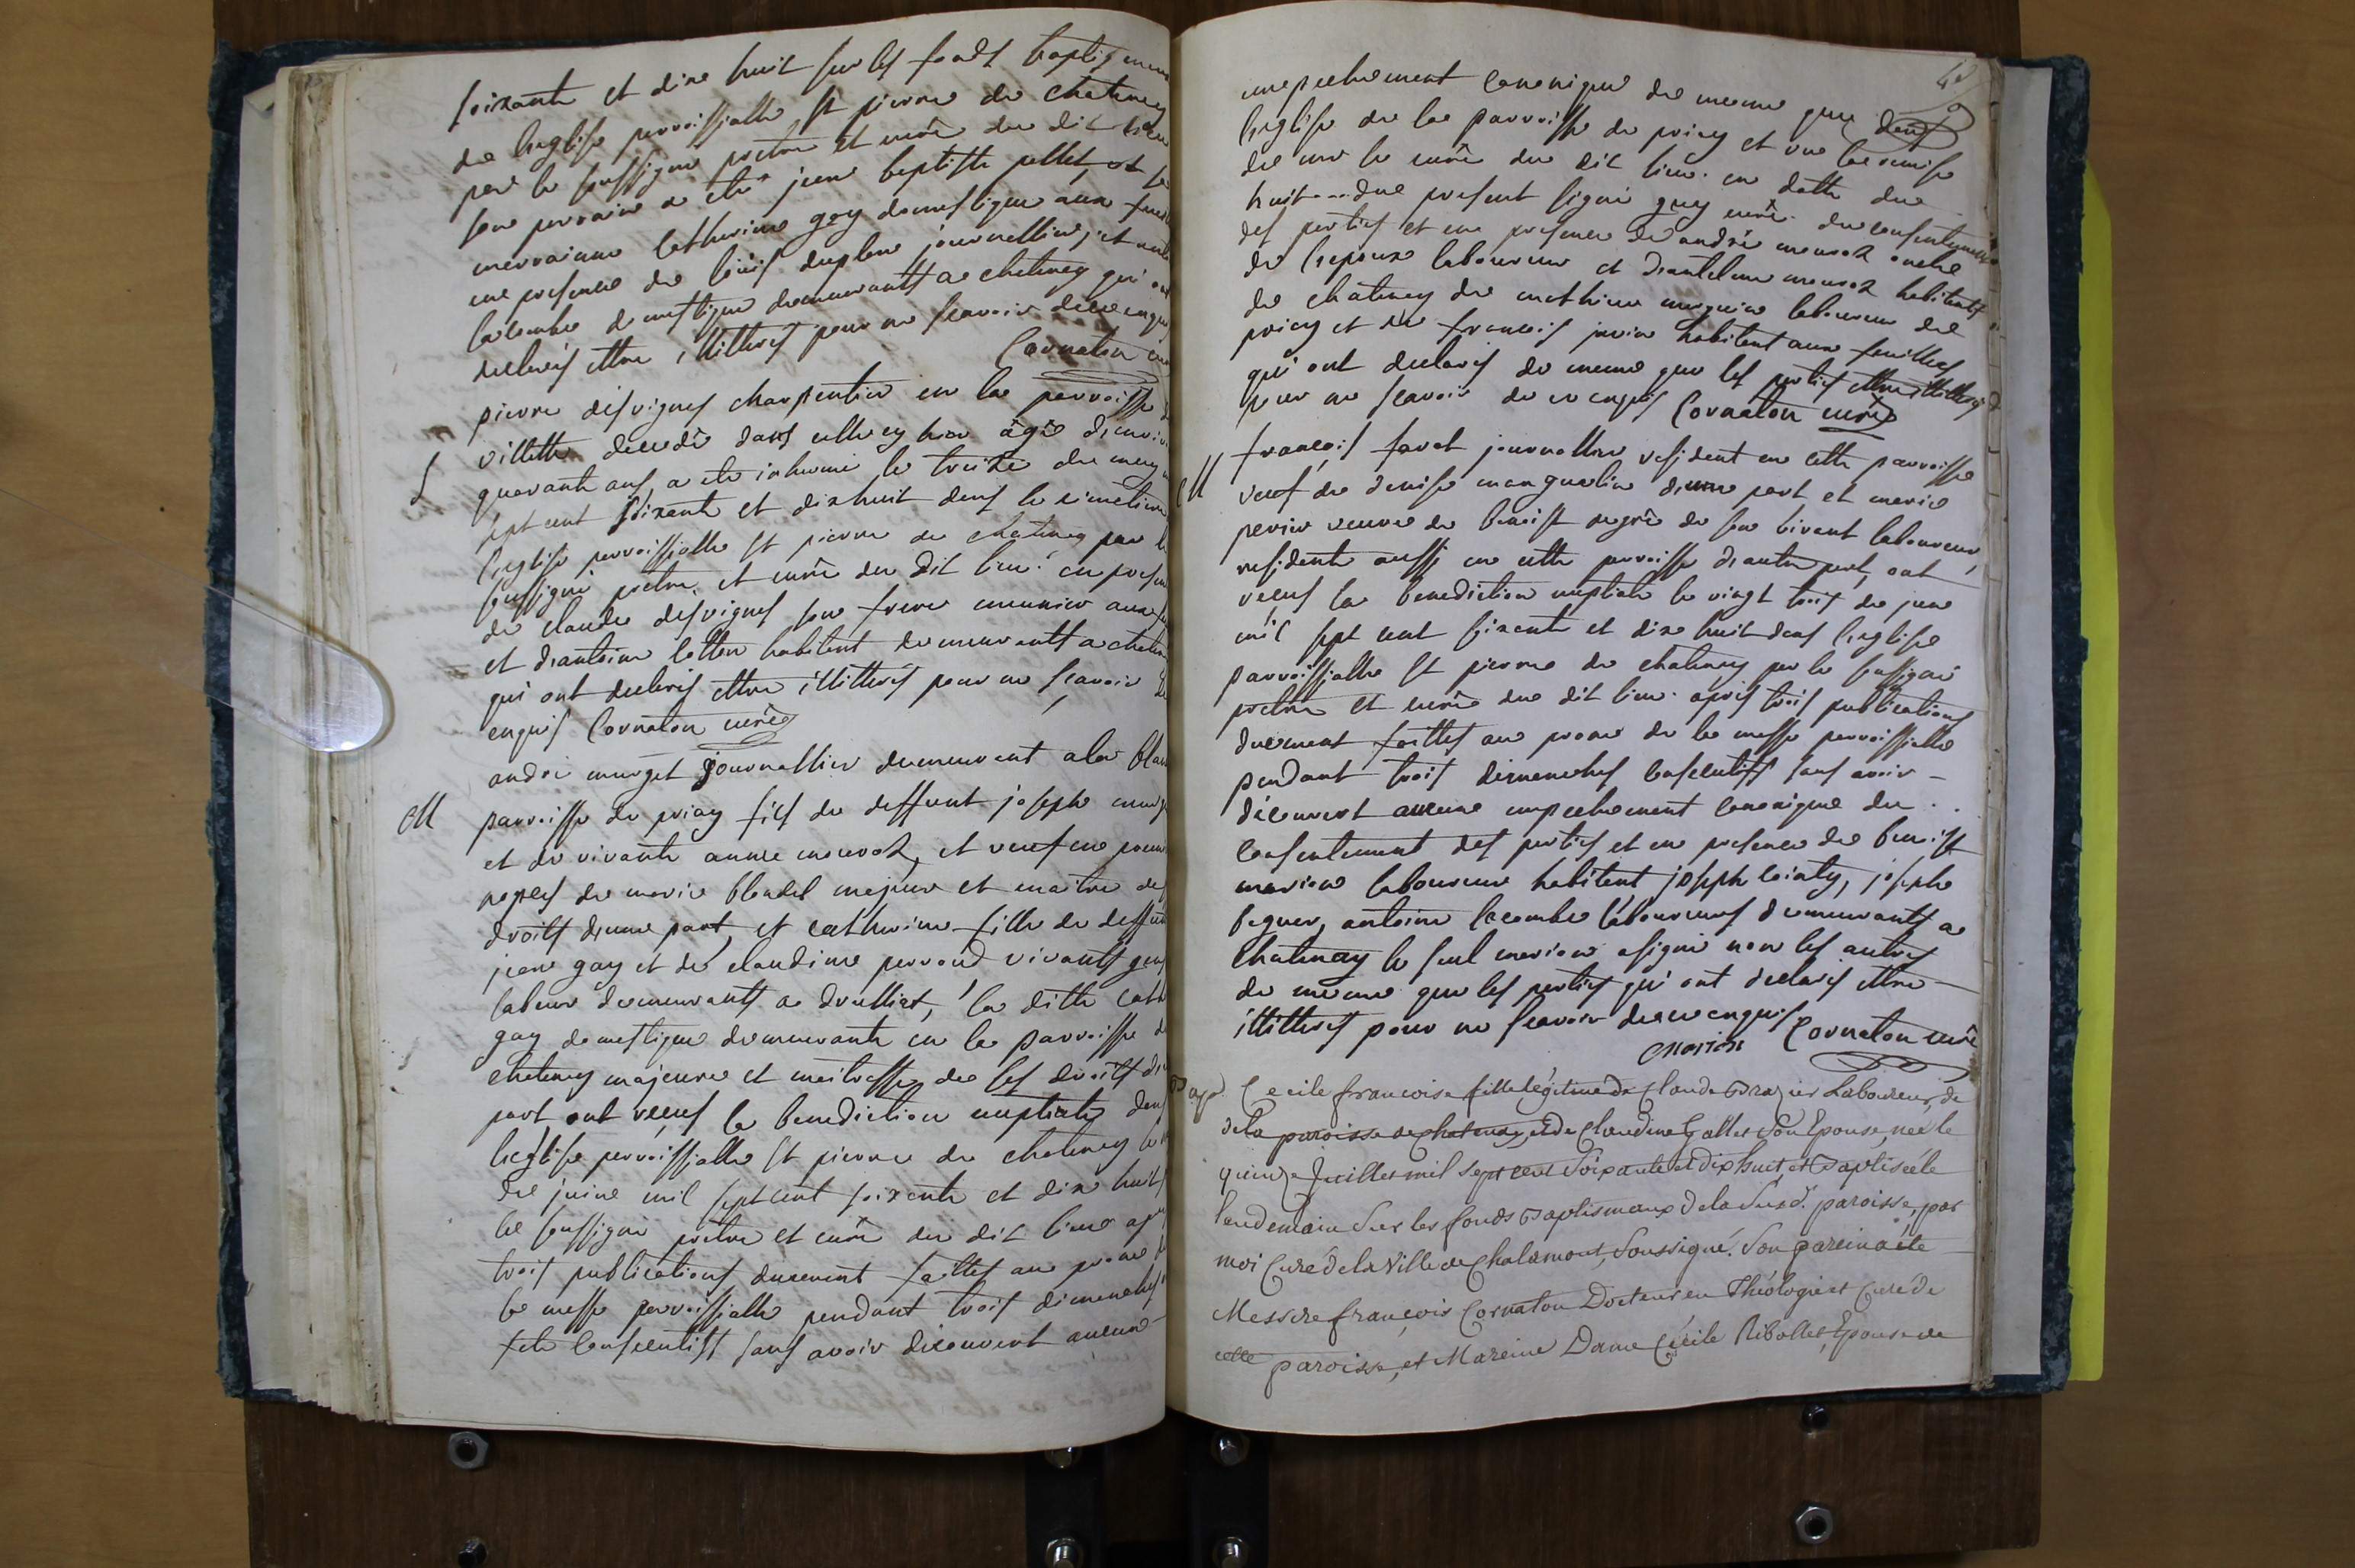 soixante et dixe huit sur les fonds baptismau
de l'eglise parroissialle St pierre de chatenay
par le soussigné pretre et curé du dit lieu
son parrain a eté jean baptiste pellet, et sa
marraine catherine gay domestique aux feuill
en presence de loüis duplan journallier, et
lacombe domestique demeurants a chatenay qui ont
declarés ettre illitterés pour ne scavoir de ce enquis
Cornaton curé
pierre desvignes charpentier en la parroisse de
villette decedé dans cette cy hier âgé d'envir
S quarante ans, a ete inhumé le treize de may m
sept cent soixante et dix huit dans le cimetiere
l'eglise parroissialle St pierre de chatenay par le
soussigné pretre, et curé du dit lieu. en presen
de claude desvignes son frere meunier aux
et d'antoine cotton habitant demeurants a chaten
qui ont declarés ettre illitterés pour ne scavoir de
enquis Cornaton curé
andré murget journallier demeurant a la blan
M parroisse de priay fils de deffunt joseph murg
et de vivante anne mouroz, et veuf en premi
nopces de marie blondel majeur et maitre de
droits d'une part, et catherine fille de deffun
jean gay et de claudine perroud vivants gens
labeur demeurants a druilliat, la ditte cath
gay domestique demeurante en la parroisse de
chatenay majeure et maitresse de ses droits d'a
part, ont reçeus la benediction nuptiale dans
l'eglise parroissialle St pierre de chatenay le
de juin mil sept cent soixante et dixe huit
le soussigné pretre et curé du dit lieu ap
trois publications duement faittes au prone de
la messe parroissialle pendant trois dimanches
fete consecutifs sans avoir découvert aucun
empechement canonique de meme que dans
l'eglise de la parroisse de priay et vu la remise
de mr le curé du dit lieu. en datte du
huit ... du present signé guy curé. du consentement
des parties et en presence de andré mouroz oncle
de l'epoux laboureur et d'antelme mouroz habitants
de chatenay de mathieu laboureur de
priay et de francois juvin habitant aux feuilles
qui ont declarés de meme que les parties ettre illitterés
pour ne scavoir de ce enquis Cornaton curé
françois favet journallier resident en cette parroisse
M veuf de denise manguelin d'une part et marie
perrin veuve de benoist degré de son vivant laboureur,
residente aussi en cette parroisse d'autre part, ont
receus la benediction nuptiale le vingt trois de juin
mil sept cent soixante et dixe huit dans l'eglise
parroissialle St pierre de chatenay par le soussigné
pretre et curé du dit lieu. après trois publications
duement faittes au prone de la messe parroissialle
pendant trois dimanches consecutifs sans avoir
découvert aucun empechement canonique du
consentement des parties et en presence de benoist
marion laboureur habitant joseph cointy, joseph
beguer, antoine lacombe laboureurs demeurants a
chatenay le seul marion a signé non les autres
de meme que les parties qui ont declarés ettre
illitterés pour ne scavoir de ce enquis
Marion Cornaton curé
Bap. Cecile francoise fille légitime de Claude Brazier Laboureur, de
de la paroisse de Chatenay, et de Claudine Gallet Son Epouse, née le
quinze Juillet mil sept cent Soixante et dix huit, et Baptisée le
lendemain Sur les fonds Baptismaux de la Susd. paroisse, par
moi Curé de la Ville de Chalamont, Soussigné. Son parein a été
Messire françois Cornaton Docteur en Théologie et Curé de
cette paroisse, et Mareine Dame Cécile Ribollet, Epouse de